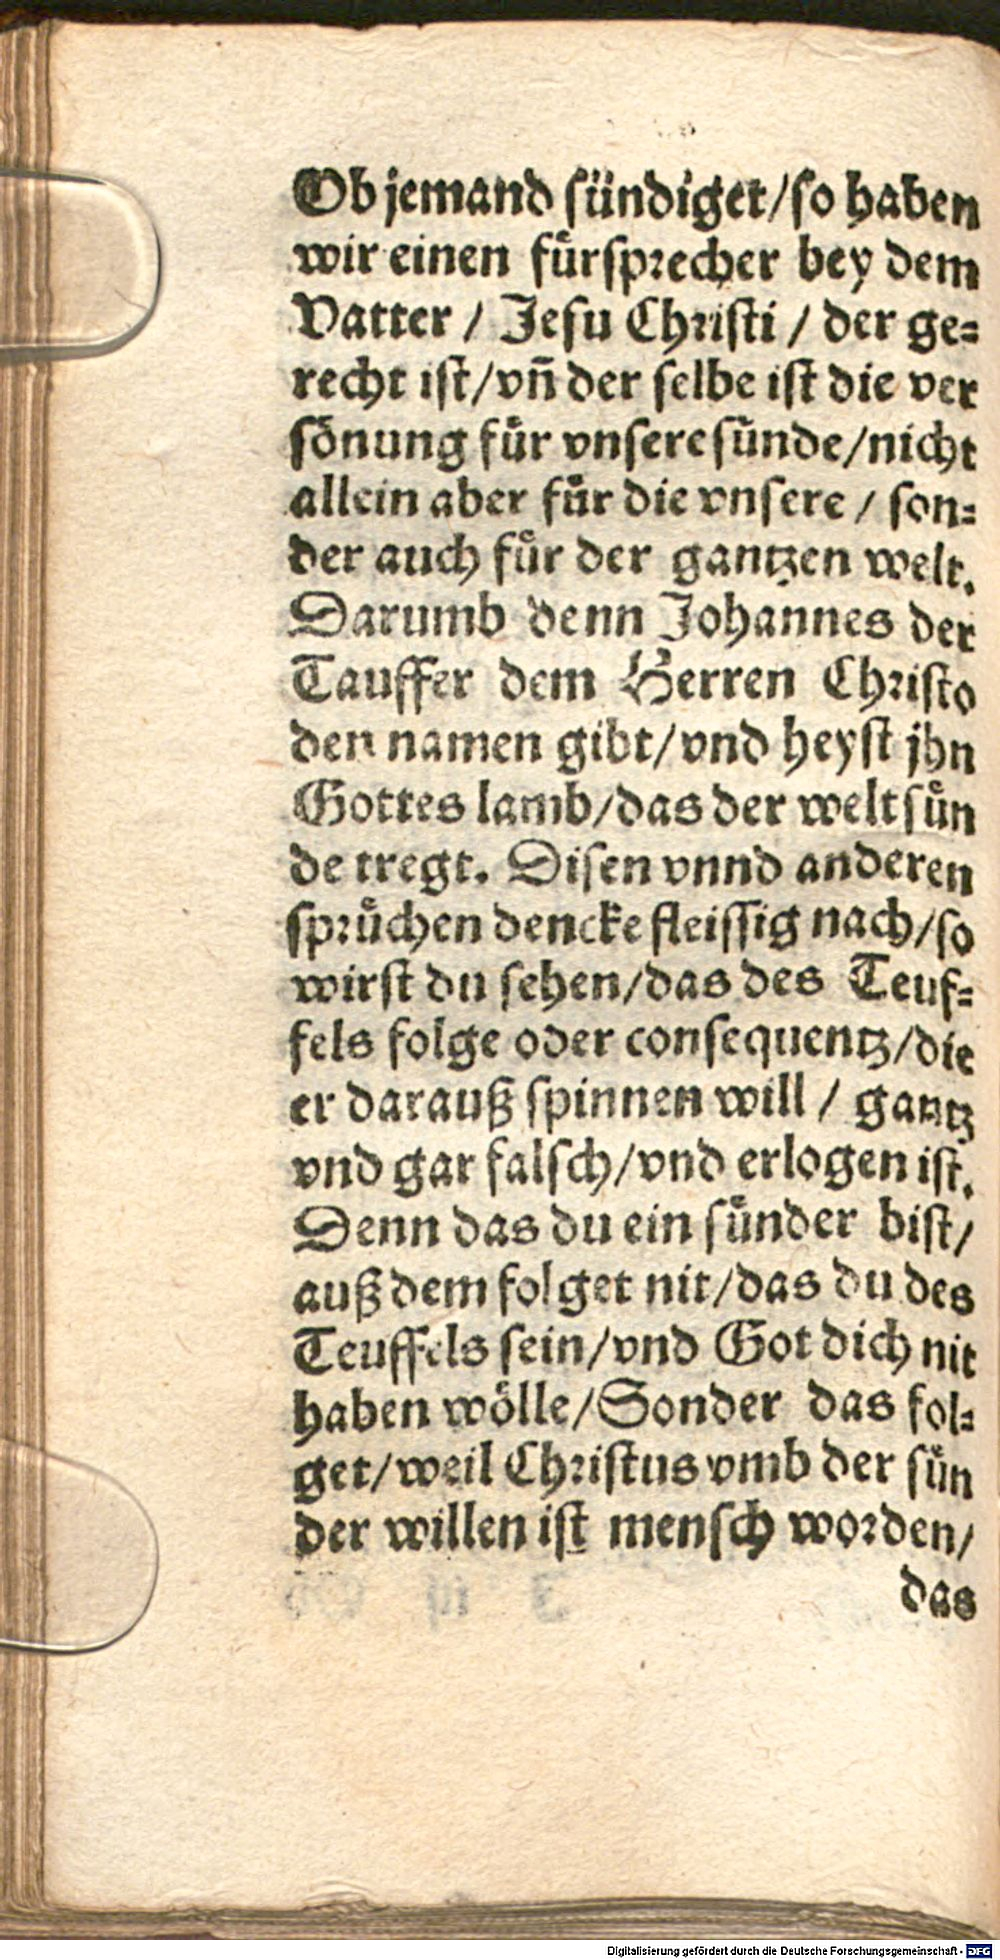 Ob jemand sündiget/so haben
wir einen fürsprecher bey dem
Vatter / Jesu Christi / der ge-
recht ist/vñ der selbe ist die ver
sönung für vnsere sünde/nicht
allein aber für die vnsere / son-
der auch für der gantzen welt.
Darumb denn Johannes der
Tauffer dem Herren Christo
den namen gibt/vnd heyst jhn
Gottes lamb/das der welt sün
de tregt. Disen vnnd anderen
sprüchen dencke fleissig nach/so
wirst du sehen/das des Teuf-
fels folge oder consequentz/die
er darauß spinnen will / gantz
vnd gar falsch/vnd erlogen ist.
Denn das du ein sünder bist/
auß dem folget nit/das du des
Teuffels sein/vnd Got dich nit
haben wölle/Sonder das fol-
get/weil Christus vmb der sün
der willen ist mensch worden/
das
Digitalisierung gefördert durch die Deutsche Forschungsgemeinschaft - DFG